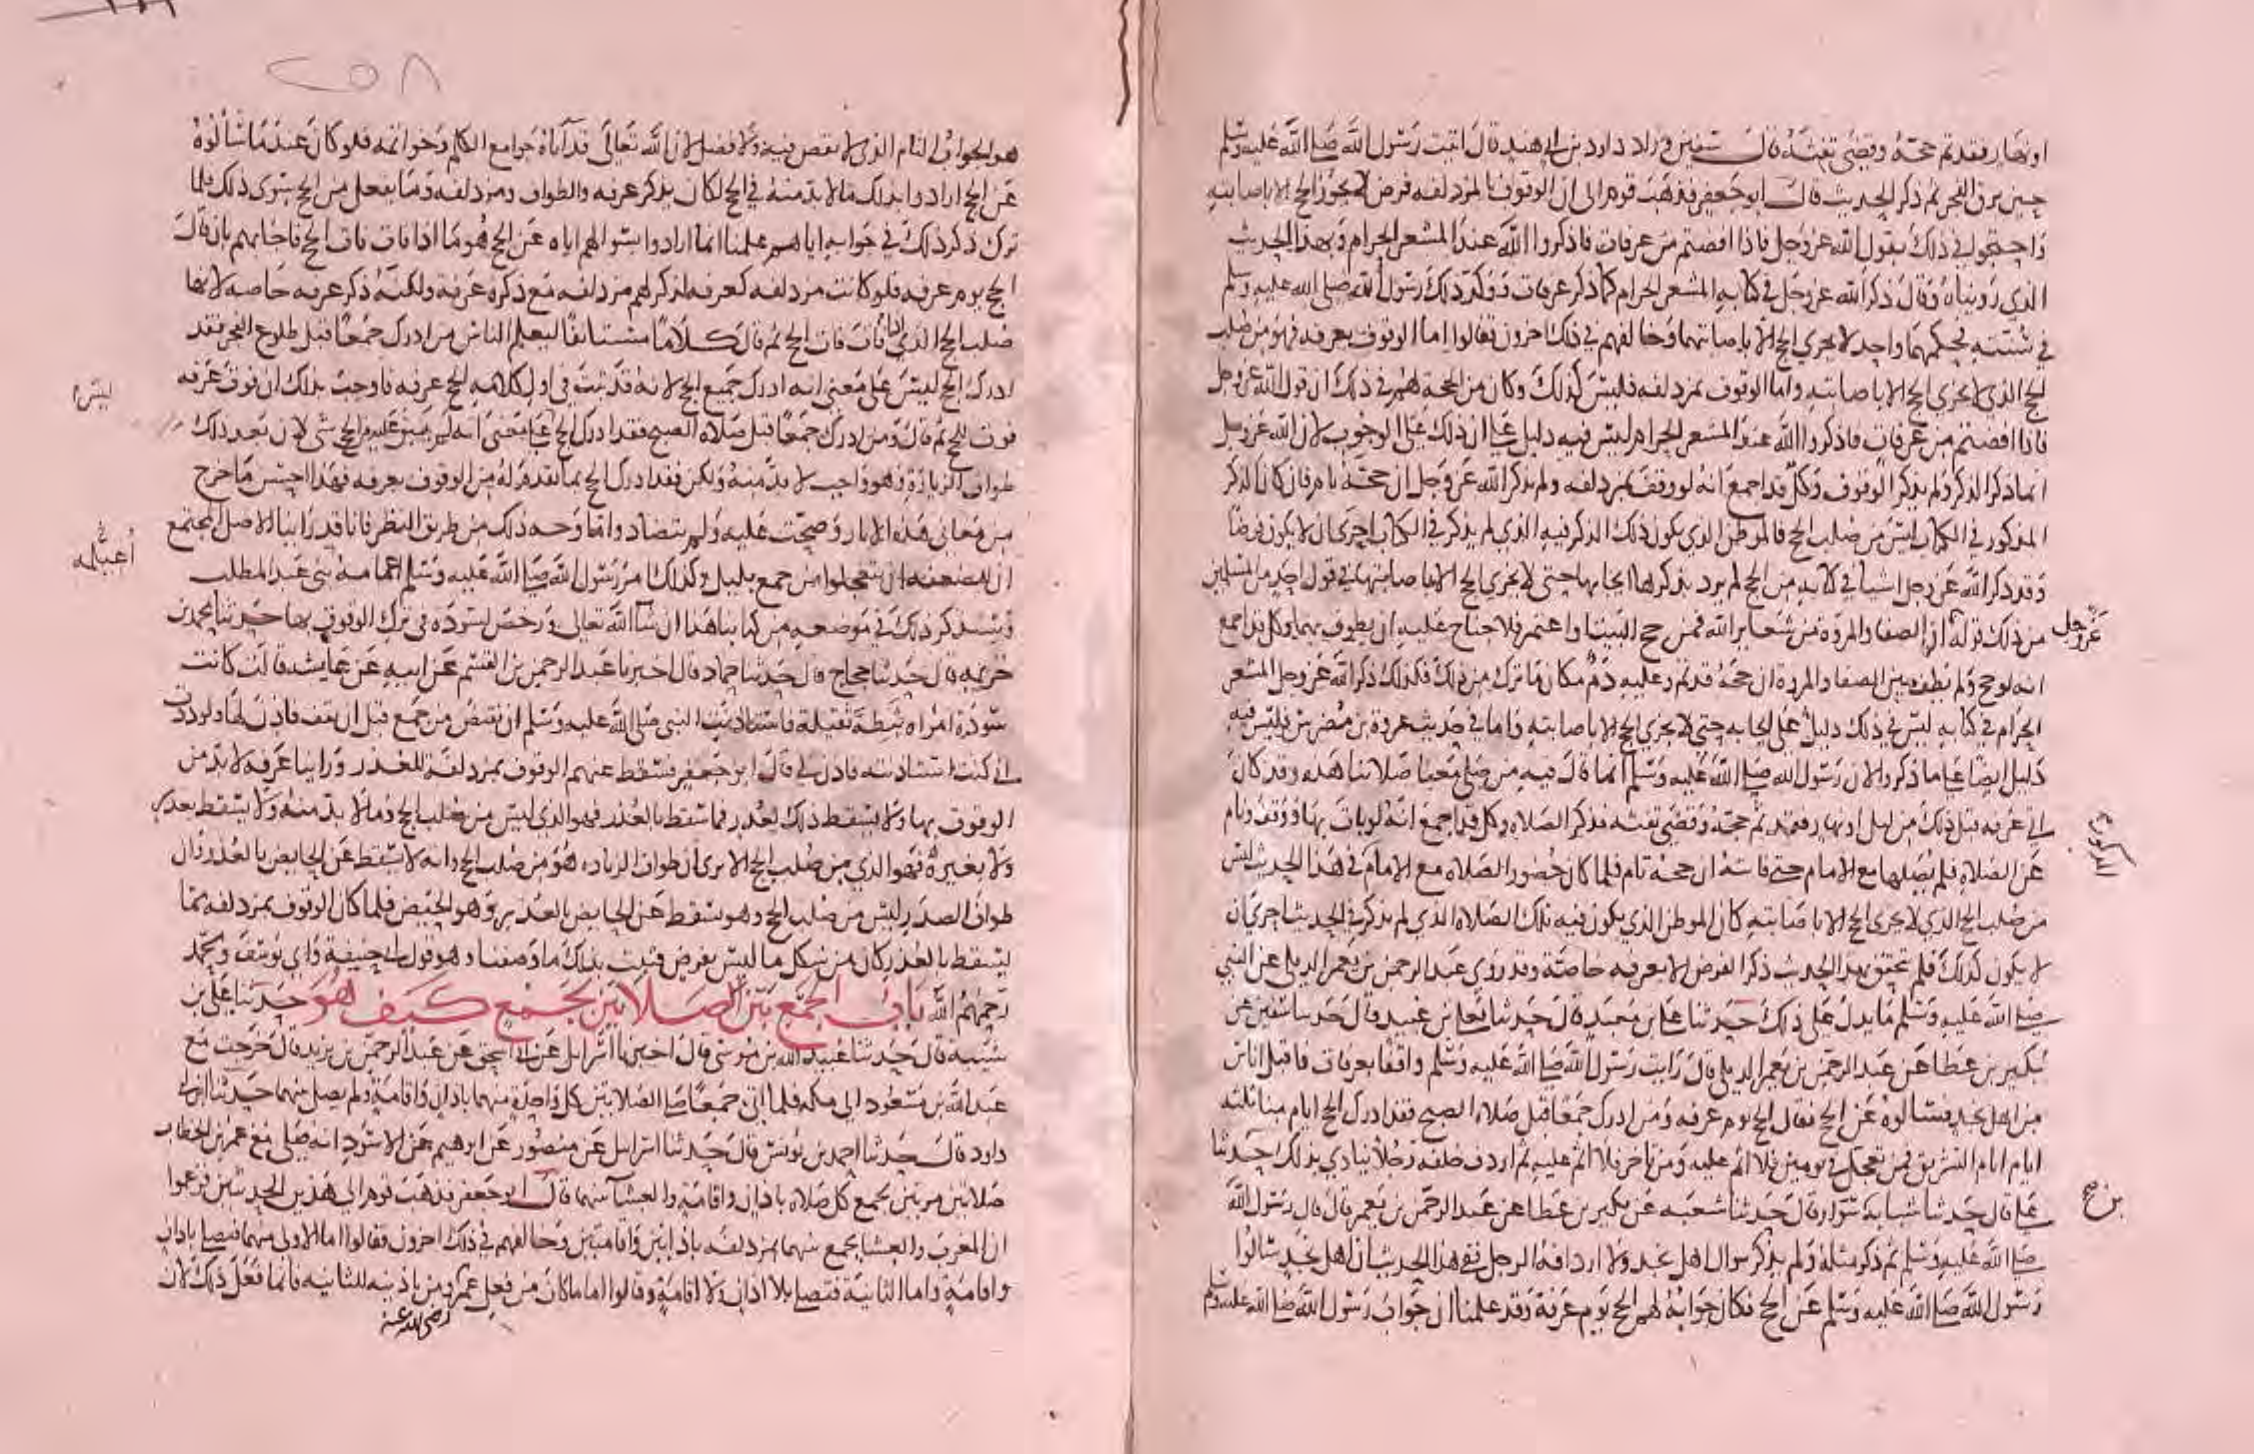 او نهارا فقد تم حجه وقضى تفثه قال سفين وزاد داود بن ابي هند قال اتيت رسول الله صلى الله عليه وسلم
حين برق الفجر ثم ذكر الحديث قال ابو جعفر فذهب قوم الى ان الوقوف بالمزدلفه فرض لا يجوز الحج الا باصابته
واحتجوا في ذلك بقول الله عز وجل فاذا افضتم من عرفات فاذكروا الله عند المشعر الحرام وبهذا الحديث
الذي رويناه وقال ذكر الله عز وجل في كتابه المشعر الحرام كما ذكر عرفات وذكر ذلك رسول الله صلى الله عليه وسلم
في سنته فحكمهما واحد لا يجزي الحج الا باصابتهما وخالفهم في ذلك اخرون فقالوا اما الوقوف بعرفه فهو من صلب
الحج الذي لا يجزي الحج الا باصابته واما الوقوف بمزدلفه فليس كذلك وكان من الحجة لهم في ذلك ان قول الله عز وجل
فاذا افضتم من عرفات فاذكروا الله عند المشعر الحرام ليس فيه دليل على ان ذلك على الوجوب لان الله عز وجل
انما ذكر الذكر ولم يذكر الوقوف وكل قد اجمع انه لو وقف بمزدلفه ولم يذكر الله عز وجل ان حجه تام فان كان الذكر
المذكور في الكتاب ليس من صلب الحج فالموطن الذي يكون ذلك الذكر فيه الذي لم يذكر في الكتاب احرى ان لا يكون فرضا
وقد ذكر الله عز وجل اشيا في كتابه من الحج لم يرد بذكرها ايجابها حتى لا يجزي الحج الا باصابتها في قول احد من المسلمين
من ذلك قوله ان الصفا والمروه من شعاير الله فمن حج البيت او اعتمر فلا جناح عليه ان يطوف بهما وكل قد اجمع
عز وجل
انه لو حج ولم يطف بين الصفا والمروة ان حجه قد تم وعليه دم مكان ما ترك من ذلك فكذلك ذكر الله عز وجل المشعر
الحرام في كتابه ليس في ذلك دليل على ايجابه حتى لا يجزي الحج الا باصابته واما في حديث عروة بن مضرس فليس فيه
دليل ايضا على ما ذكروا لان رسول الله صلى الله عليه وسلم انما قال فيه من صلى معنا صلاتنا هذه وقد كان
اتى عرفه قبل ذلك من ليل او نهار فقد تم حجه وقضى تفثه فذكر الصلاه وكل قد اجمع انه لو بات بها ووقف ونام
عن الصلاه فلم يصلها مع الامام حتى فاتته ان حجه تام فلما كان حضور الصلاه مع الامام في هذا الحديث ليس
المذكورة
من صلب الحج الذي لا يجزى الحج الا باصابته كان الموطن الذي يكون فيه تلك الصلاة الذي لم يذكر في الحديث احرى ان
لا يكون كذلك فلم يتحقق بهذا الحديث ذكر الفرض الا بعرفه خاصة وقد روي عبد الرحمن بن يعمر الديلي عن النبي
صلى الله عليه وسلم ما يدل على ذلك حدثنا علي بن معبد قال حدثنا يعلى بن عبيد قال حدثنا سفين عن
بكير بن عطا عن عبد الرحمن بن يعمر الديلي قال رايت رسول الله صلى الله عليه وسلم واقفا بعرفات فاقبل اناس
من اهل نجد فسالوه عن الحج فقال الحج يوم عرفه ومن ادرك جمعا قبل صلاه الصبح فقد ادرك الحج ايام منا ثلثه
ايام ايام التشريق فمن تعجل في يومين فلا اثم عليه ومن تاخر فلا اثم عليه ثم اردف خلفه رجلا ينادي بذلك حدثنا
علي قال حدثنا شبابة بن سوار قال حدثنا شعبه عن بكير بن عطا عن عبد الرحمن بن يعمر قال قال رسول الله
بن صح
صلى الله عليه وسلم ثم ذكر مثله ولم يذكر سوال اهل نجد ولا اردافه الرجل ففي هذا الحديث ان اهل نجد سالوا
رسول الله صلى الله عليه وسلم عن الحج فكان جوابه لهم الحج يوم عرفة وقد علمنا ان جواب رسول الله صلى الله عليه وسلم
٢٥٨
هو الجواب التام الذي لا نقص فيه ولا فضل لان الله تعالى قد آتاه جوامع الكلم وخواتمه فلو كان عندما سألوه
عن الحج ارادوا بذلك ما لا بد منه في الحج لكان يذكر عرفه والطواف ومزدلفه وما يفعل من الحج سوى ذلك فلما
ترك ذكر ذلك في جوابه اياهم علمنا انما ارادوا بسوالهم اياه عن الحج هو ما اذا فات فات الحج فاجابهم بان قال
الحج يوم عرفه فلو كانت مزدلفه كعرفه لذكر لهم مزدلفه مع ذكره عرفة ولكنه ذكر عرفه خاصه لانها
صلب الحج الذي اذا فات فات الحج ثم قال كلاما مستانفا ليعلم الناس من ادرك جمعا قبل طلوع الفجر فقد
ادرك الحج ليس على معنى انه ادرك جميع الحج لانه قد ثبت في اول كلامه الحج عرفه فاوجب بذلك ان فوت عرفه
ليس
فوت للحج ثم قال ومن ادرك جمعا قبل صلاه الصبح فقد ادرك الحج على معنى انه لم يبق عليه من الحج شي لان بعد ذلك
طواف الزيارة وهو واجب لا بد منه ولكن فقد ادرك الحج بما تقدم له من الوقوف بعرفه فهذا احسن ما خرج
من معاني هذه الاثار وصححت عليه ولم تتضاد واما وجه ذلك من طريق النظر فانا قد راينا الاصل المجتمع
عليه
ان للضعفه ان يتعجلوا من جمع بليل وكذلك امر رسول الله صلى الله عليه وسلم بني عبد المطلب
أغيلمة
وسنذكر ذلك في موضعه من كتابنا هذا ان شا الله تعالى ورخص لسوده في ترك الوقوف بها حدثنا محمد بن
خزيمه قال حدثنا حجاج قال حدثنا حماد قال اخبرنا عبد الرحمن بن القسم عن ابيه عن عايشه قالت كانت
سودة امراه ثبطة ثقيلة فاستاذنت النبي صلى الله عليه وسلم ان تفيض من جمع قبل ان تقف فاذن لها ولوددت
اني كنت استاذنته فاذن لي قال ابو جعفر فسقط عنهم الوقوف بمزدلفة للعذر وراينا عرفه لا بد من
الوقوف بها ولا يسقط ذلك لعذر فما سقط بالعذر فهو الذي ليس من صلب الحج وما لا بد منه ولا يسقط بعذر
ولا بغيره فهو الذي من صلب الحج الا يرى ان طواف الزياره هو من صلب الحج وانه لا يسقط عن الحايض بالعذر وان
طواف الصدر ليس من صلب الحج وهو يسقط عن الحايض بالعذر وهو الحيض فلما كان الوقوف بمزدلفه مما
يسقط بالعذر كان من شكل ما ليس بفرض فثبت بذلك ما وصفنا وهو قول ابي حنيفة وابي يوسف ومحمد
رحمهم الله باب الجمع بين الصلاتين بجمع كيف هو حدثنا علي بن
شيبه قال حدثنا عبيد الله بن موسى قال اخبرنا اسرائيل عن ابي اسحق عن عبد الرحمن بن يزيد قال خرجت مع
عبد الله بن مسعود الى مكه فلما اتى جمعا صلى الصلاتين كل واحدة منهما باذان واقامة ولم يصل بينهما حدثنا ابن ابي
داود قال حدثنا احمد بن يونس قال حدثنا اسرائيل عن منصور عن ابرهيم عن الاسود انه صلى مع عمر بن الخطاب
صلاتين مرتين بجمع كل صلاه باذان واقامة والعشا بينهما قال ابو جعفر فذهب قوم الى هذين الحديثين فزعموا
ان المغرب والعشا يجمع بينهما بمزدلفه باذانين واقامتين وخالفهم في ذلك اخرون فقالوا اما الاولى منهما فتصلى باذان
واقامة واما الثانية فتصلى بلا اذان ولا اقامة وقالوا اما ما كان من فعل عمر ومن تاذينه للثانيه فانما فعل ذلك لان
رضي الله عنه